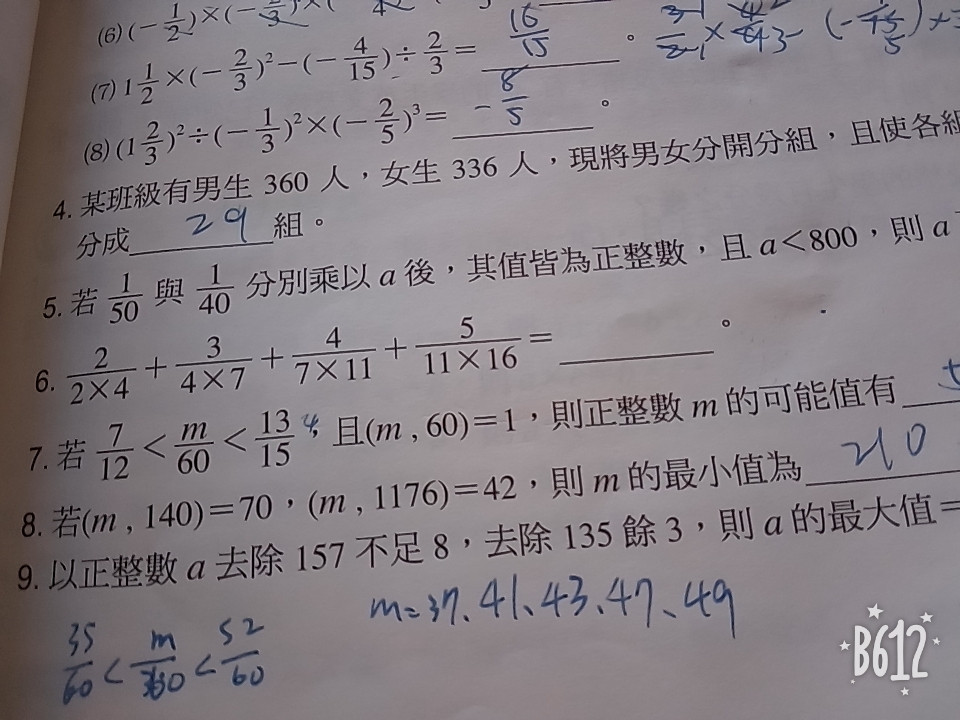 (6) (-1/2)×(-
(7) 1 1/2 × (-2/3)² - (-4/15) ÷ 2/3 = 16/15 。
(8) (1 2/3)² ÷ (-1/3)² × (-2/5)³ = -8/5 。
4. 某班級有男生 360 人，女生 336 人，現將男女分開分組，且使各組
分成 29 組。
5. 若 1/50 與 1/40 分別乘以 a 後，其值皆為正整數，且 a<800，則 a
6. 2/(2×4) + 3/(4×7) + 4/(7×11) + 5/(11×16) = 。
7. 若 7/12 < m/60 < 13/15，且(m , 60)=1，則正整數 m 的可能值有 5
8. 若(m , 140)=70，(m , 1176)=42，則 m 的最小值為 210
9. 以正整數 a 去除 157 不足 8，去除 135 餘 3，則 a 的最大值=
m=37、41、43、47、49
35/60 < m/60 < 52/60
B612